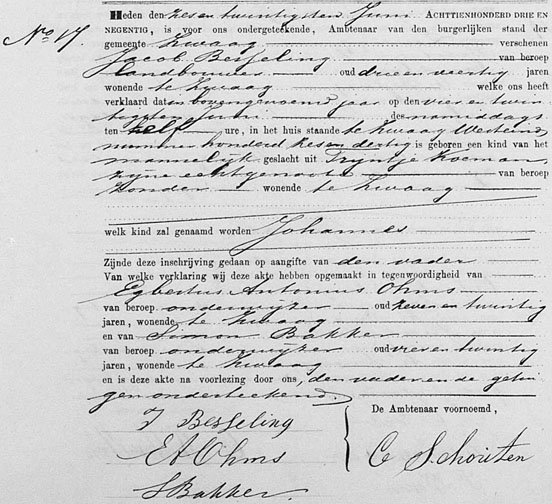 No 17.
Heden den zes en twintigsten Juni, ACHTTIENHONDERD DRIE EN
NEGENTIG, is voor ons ondergeteekende, Ambtenaar van den burgerlijken stand der
gemeente Zwaag verschenen
Jacob Besseling van beroep
landbouwer oud drie en veertig jaren
wonende te Zwaag welke ons heeft
verklaard dat in bovengenoemd jaar op den vier en twin
tigsten Juni des namiddags
ten half ure, in het huis staande te Zwaag Westeind,
nummer honderd zes en dertig is geboren een kind van het
mannelijk geslacht uit Trijntje Koeman,
zijne echtgenoote van beroep
zonder wonende te Zwaag
welk kind zal genaamd worden Johannes
Zijnde deze inschrijving gedaan op aangifte van den vader
Van welke verklaring wij deze akte hebben opgemaakt in tegenwoordigheid van
Egbertus Antonius Ohms
van beroep onderwijzer oud zeven en twintig
jaren, wonende te Zwaag
en van Simon Bakker
van beroep onderwijzer oud vier en twintig
jaren, wonende te Zwaag
en is deze akte na voorlezing door ons, den vader en de getui
gen onderteekend.
De Ambtenaar voornoemd,
J Besseling
EAOhms
C Schouten
SBakker.